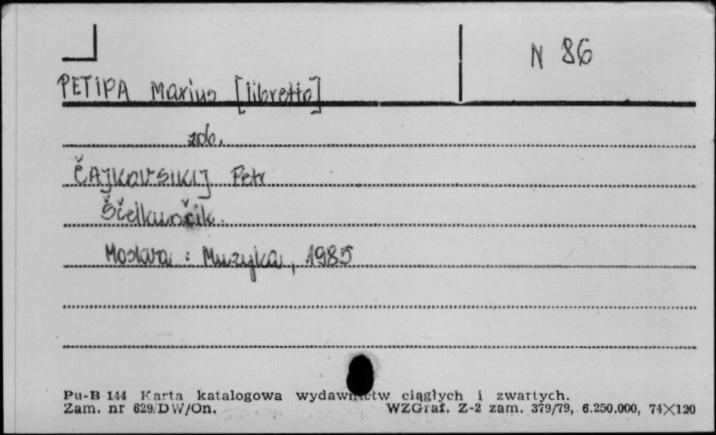 N 86
PETIPA Marius [libretto]
zob.
ČAJKOVSKIJ Petr
Ščelkunčik.
Moskva : Muzyka, 1985
Pu-B 144 Karta katalogowa wydawnictw ciągłych i zwartych.
Zam. nr 629/DW/On. WZGraf. Z-2 zam. 379/79, 6.250.000, 74×120